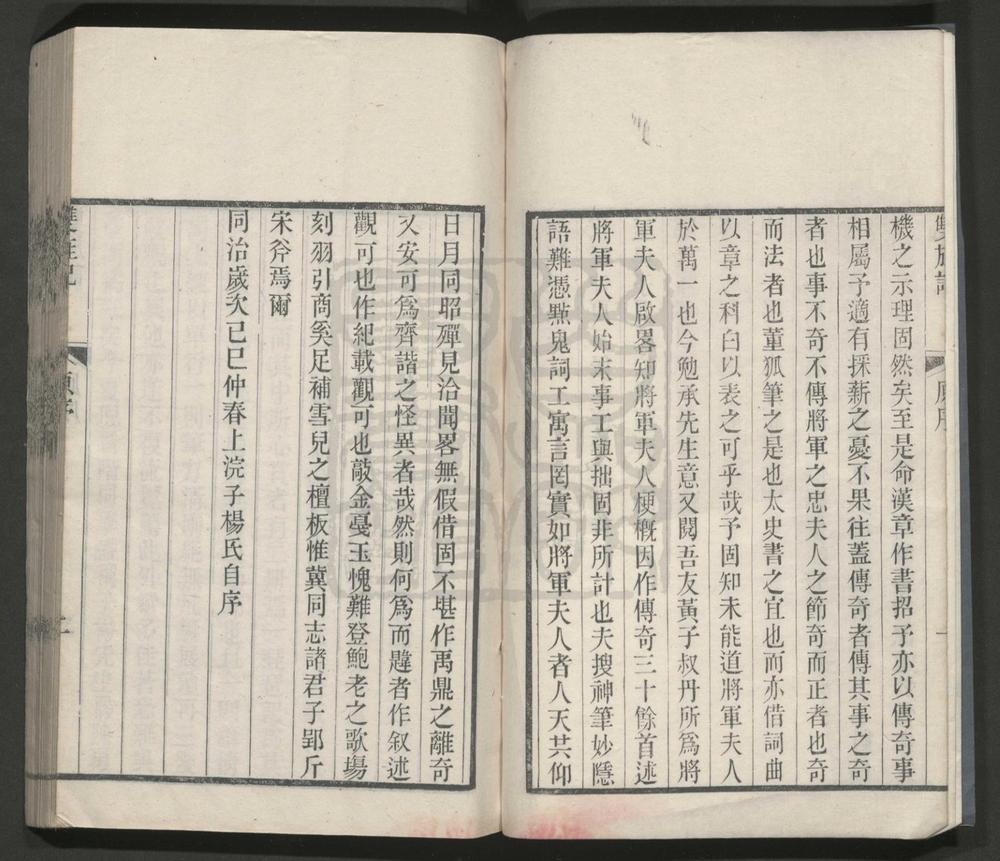 機之示理固然矣至是命漢章作書招予亦以傳奇事
相屬予適有採薪之憂不果往蓋傳奇者傳其事之奇
者也事不奇不傳將軍之忠夫人之節奇而正者也奇
而法者也董狐筆之是也太史書之宜也而亦借詞曲
以章之科臼以表之可乎哉予固知未能道將軍夫人
於萬一也今勉承先生意又閱吾友黃子叔丹所爲將
軍夫人啟畧知將軍夫人梗概因作傳奇三十餘首述
將軍夫人始末事工與拙固非所計也夫搜神筆妙隱
語難憑㸃鬼詞工寓言罔實如將軍夫人者人天共仰
日月同昭殫見洽聞畧無假借固不堪作禹鼎之離奇
又安可爲齊諧之怪異者哉然則何爲而韙者作叙述
觀可也作紀載觀可也敲金戛玉愧難登鮑老之歌塲
刻羽引商奚足補雪兒之檀板惟冀同志諸君子郢斤
宋斧焉爾
同治歲次己巳仲春上浣子楊氏自序
二